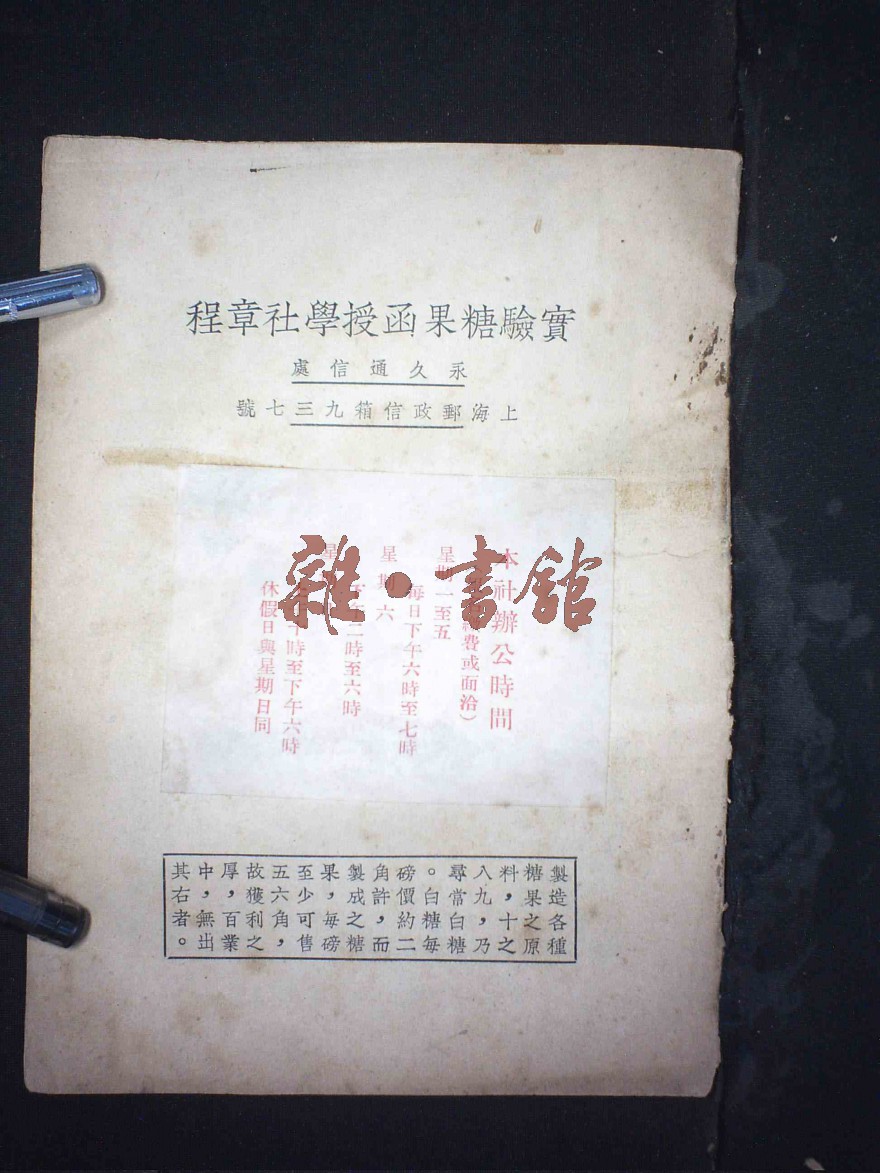 實驗糖果函授學社章程
永久通信處
上海郵政信箱九三七號
雜·書館
本社辦公時間
費或面洽）
星期一至五
每日下午六時至七時
星期六
二時至六時
星
十時至下午六時
休假日與星期日同
製造各種
糖果之原
料，十之
八九，乃
尋常白糖
。白糖每
磅價約二
角許，而
製成之糖
果，每磅
至少可售
五六角，
故獲利之
厚，百業
中，無出
其右者。